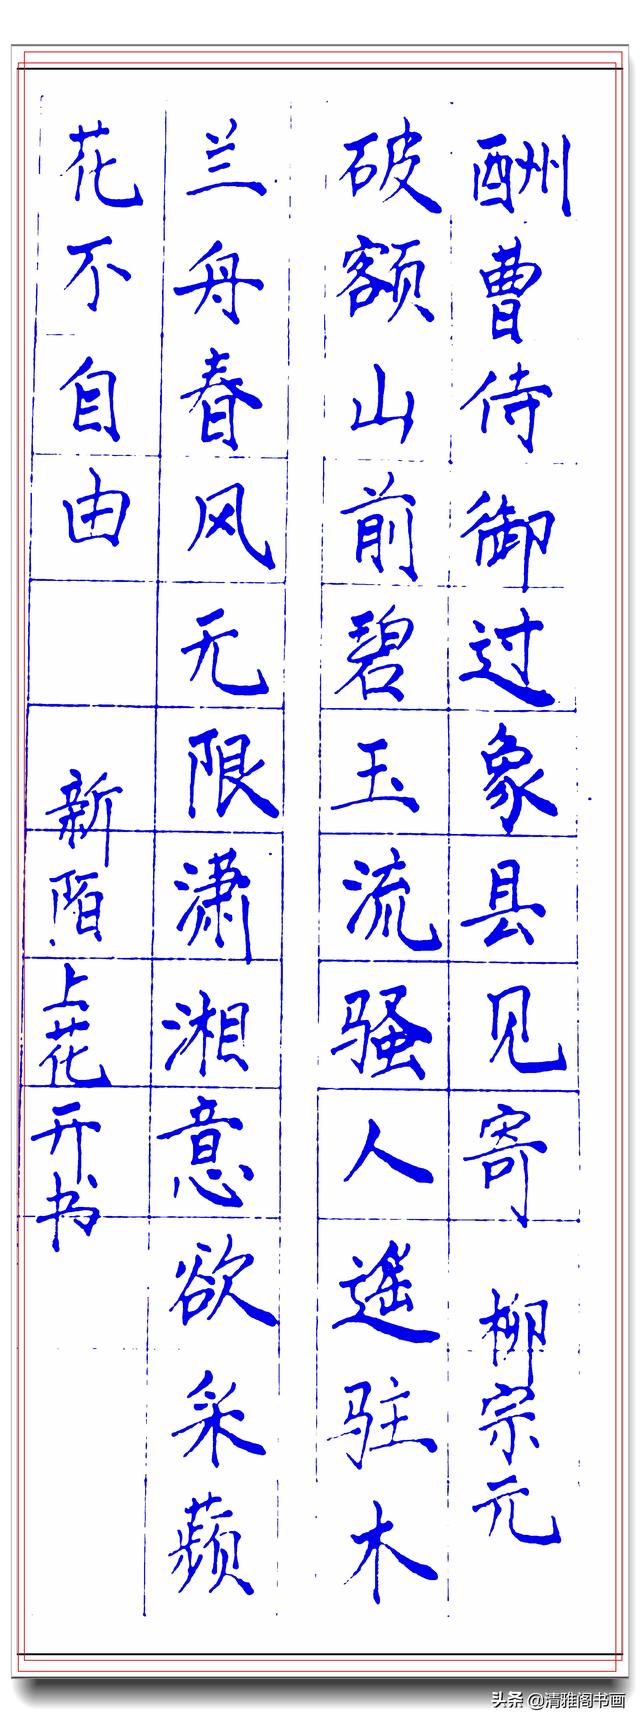 酬曹侍御过象县见寄 柳宗元
破额山前碧玉流骚人遥驻木
兰舟春风无限潇湘意欲采蘋
花不自由
新陌上花开书
头条 @清雅阁书画